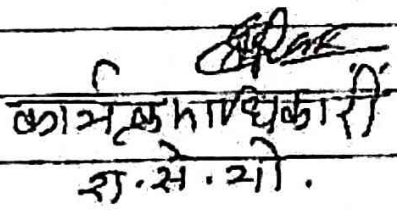 कार्यक्रमाधिकारी
रा. से. यो.